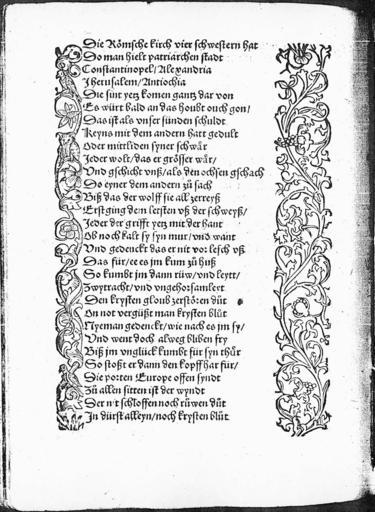 Die Römsche kirch vier schwestern hat
Do man hielt patriarchen stadt
Constantinopel/ Alexandria
Jherusalem/ Antiochia
Die sint yetz komen gantz dar von
Es würt bald an das houbt ouch gon/
Das ist als vnser sünden schuldt
Keyns mit dem andern hart gedult
Oder mittliden syner schwär
Jeder wolt/ das er grösser wär/
Vnd gschicht vnß/ als den ochsen gschach
Do eyner dem andern zů sach
Biß das der wolff sie all zerreyß
Erst ging dem letsten vß der schweyß/
Jeder der grifft yetz mit der hant
Ob noch kalt sy syn mur/ vnd want
Vnd gedenckt das er nit vor lesch vß
Das für/ ee es jm kum zů huß
So kumbt jm dann rüw/ vnd leytt/
Zwytracht/ vnd vngehorsamkeit
Den krysten gloub zerstören důt
On not vergüßt man krysten blůt
Nyeman gedenckt/ wie nach es jm sy/
Vnd went doch alweg bliben fry
Biß jm vnglück kumbt für syn thür
So stoßt er dann den kopff har für/
Die porten Europe offen syndt
Zů allen sitten ist der vyndt
Der nit schloffen noch rüwen důt
Jn dürst alleyn/ noch krysten blůt